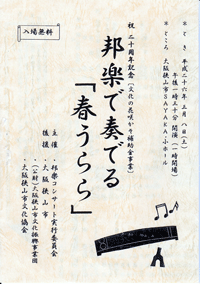 ※とき 平成二十六年 三月 八日(土)
午後一時三十分 開演(一時開場)
※ところ 大阪狭山市SAYAKA小ホール
祝 二十周年記念(文化の花咲かそ補助金事業)
邦楽で奏でる
「春うらら」
主催 ・邦楽コンサート実行委員会
後援 ・大阪狭山市
・(公財)大阪狭山市文化振興事業団
・大阪狭山市文化協会
入場無料